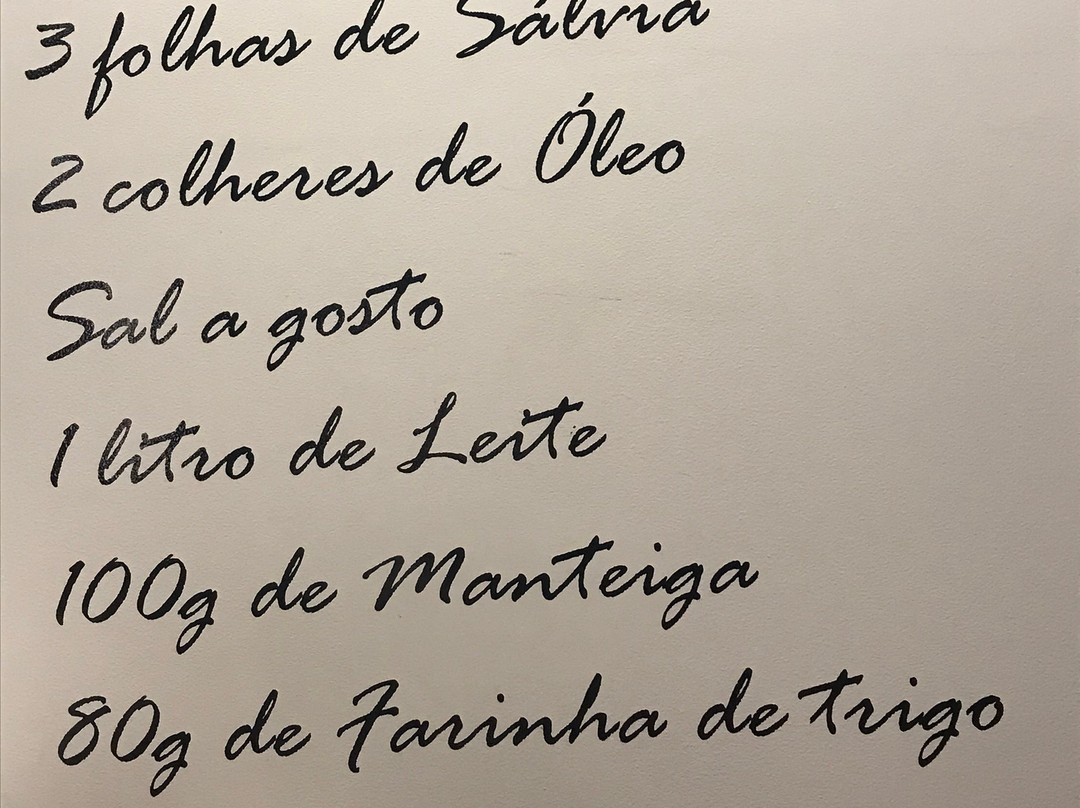 3 folhas de Sálvia
2 colheres de Óleo
Sal a gosto
1 litro de Leite
100g de Manteiga
80g de Farinha de trigo